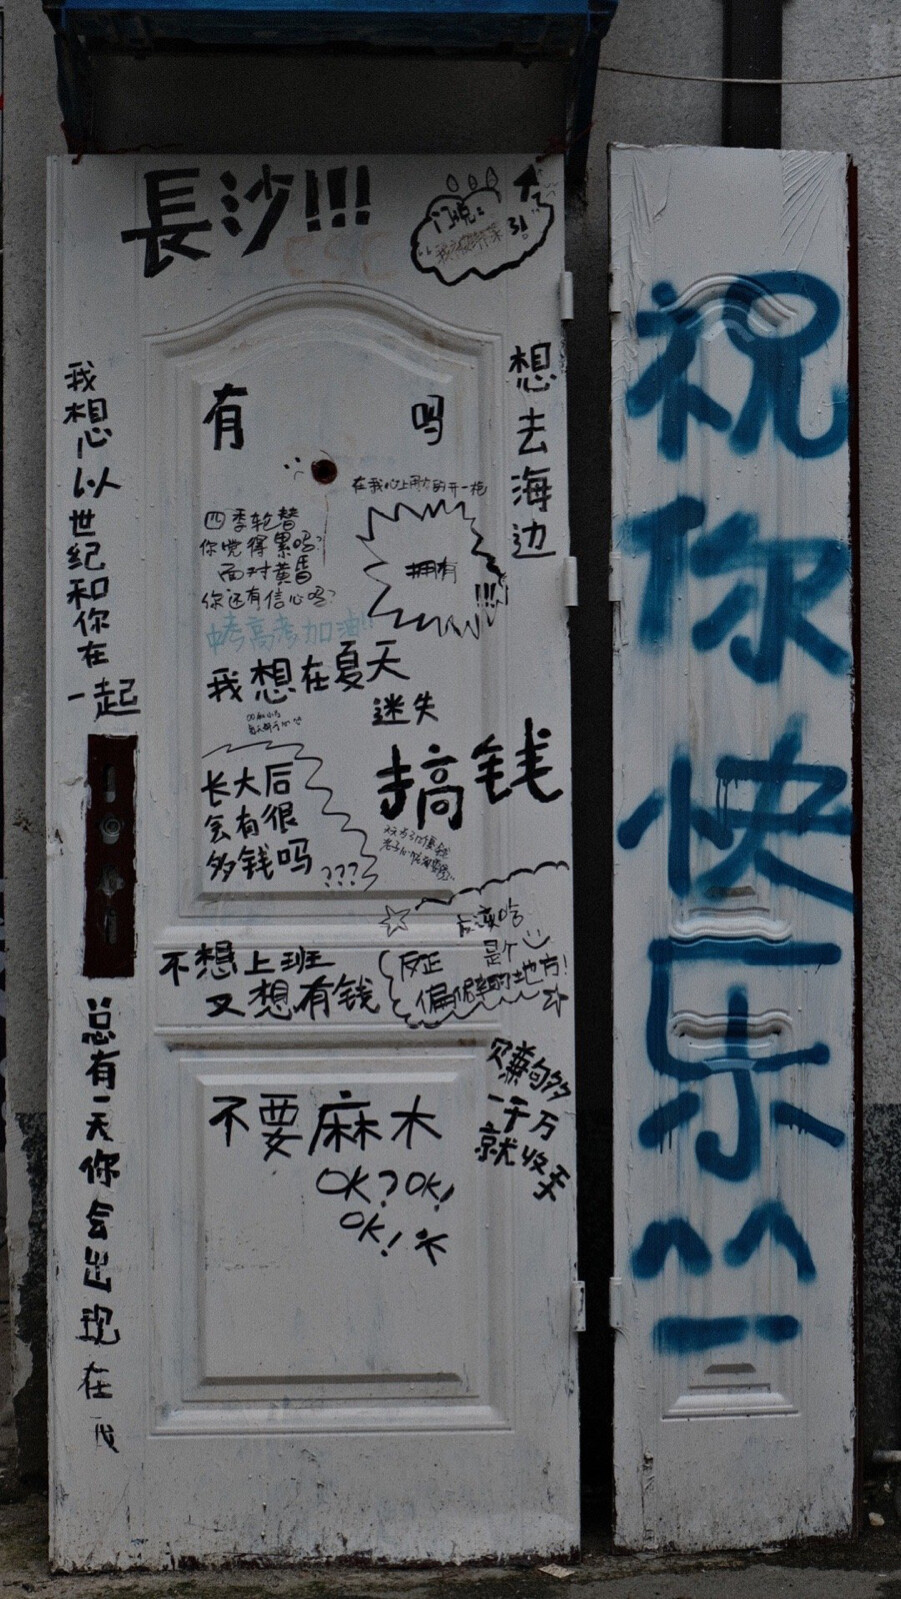 長沙!!!
我想以世纪和你在一起
有 吗
想去海边
在我心上用力的开一枪
四季轮替
你觉得累吗?
面对黄昏
你还有信心吗?
拥有
!!!
中考高考加油!!
我想在夏天
迷失
搞钱
长大后
会有很
多钱吗
???
不想上班
又想有钱
反正
是个
偏僻的地方!
赚够
一千万
就收手
不要麻木
OK? OK!
OK! OK
总有一天你会出现在我
祝你快乐
^^